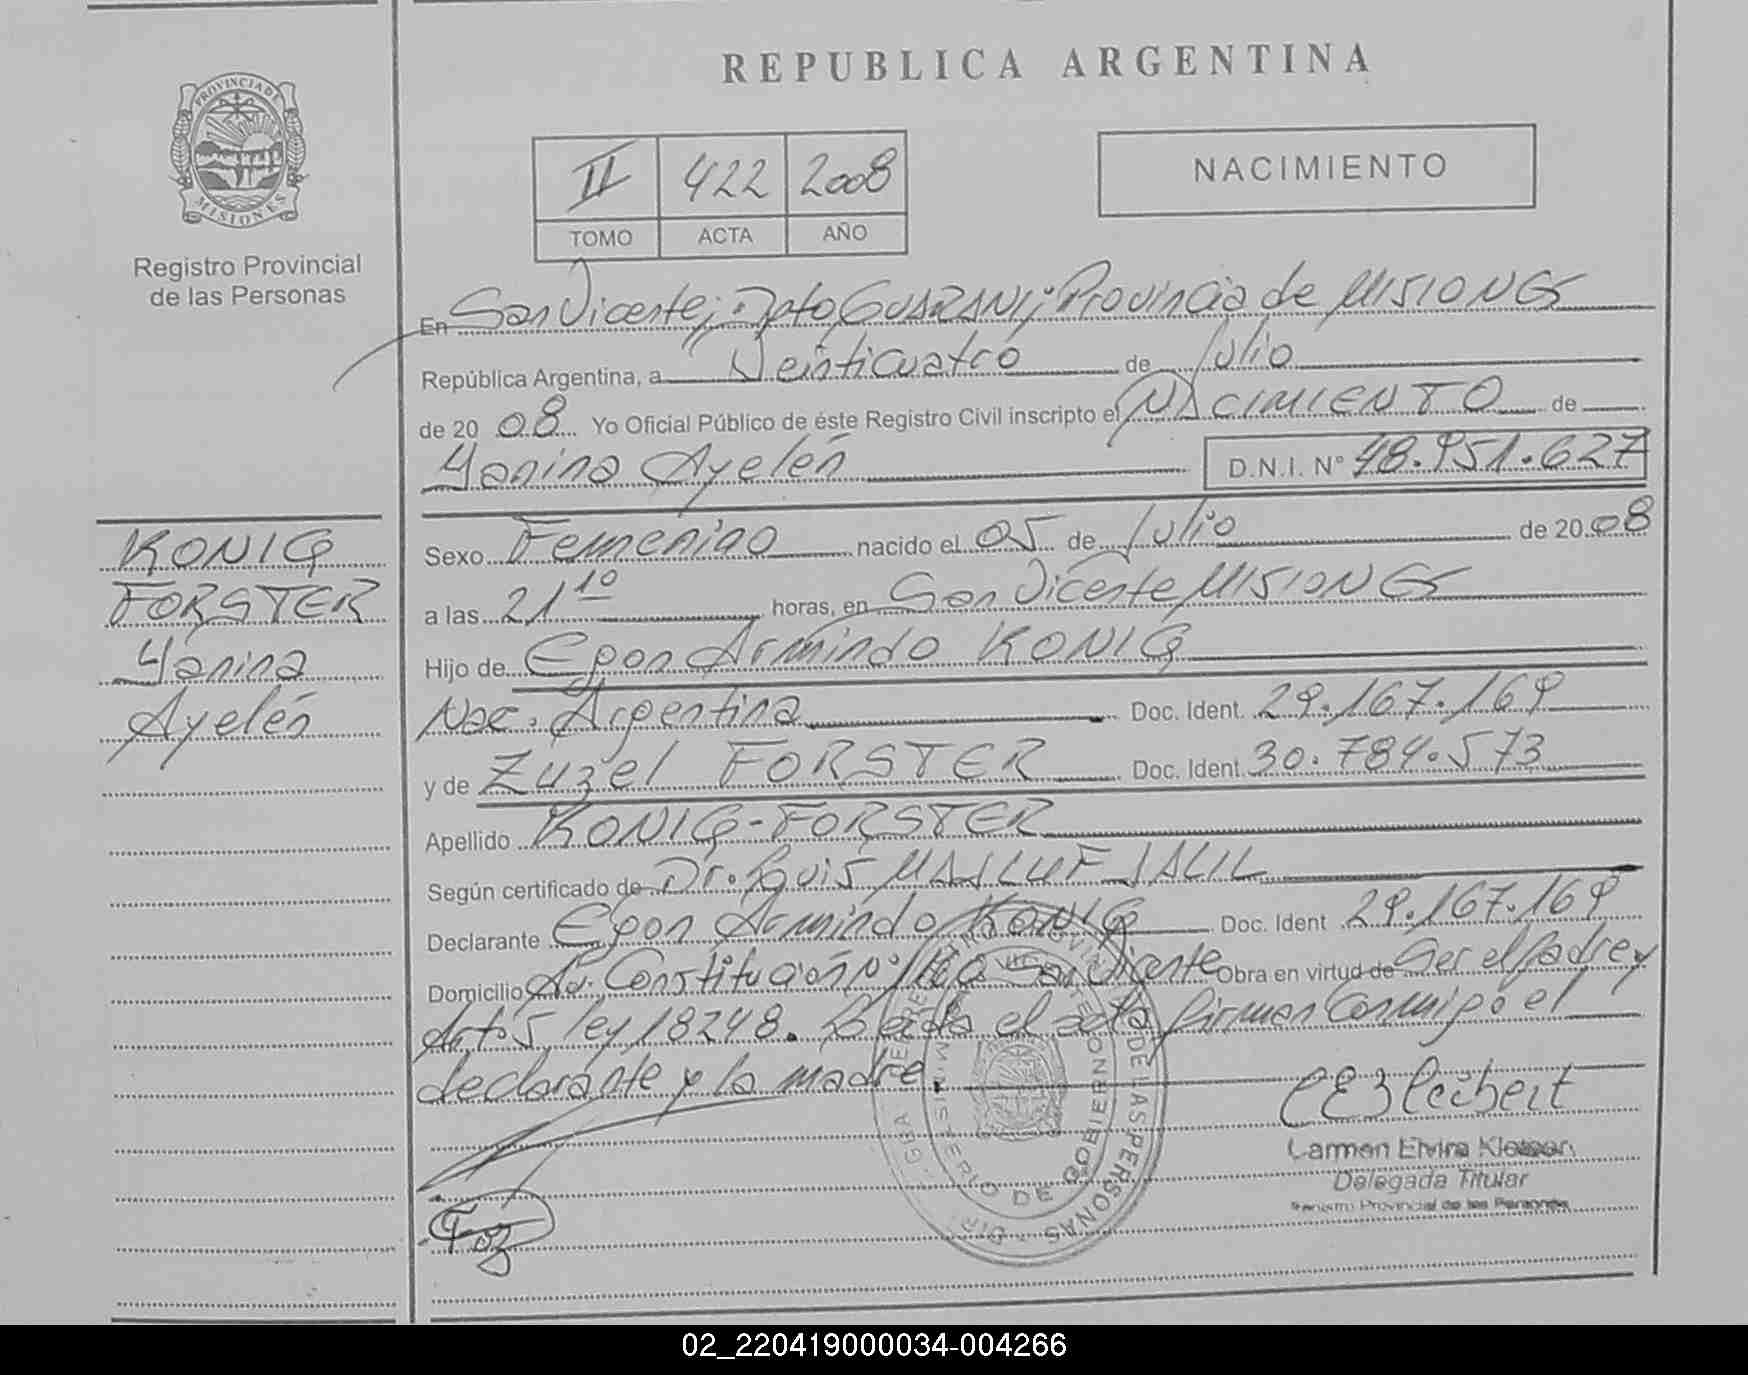 REPUBLICA ARGENTINA
PROVINCIA DE
MISIONES
Registro Provincial
de las Personas
II 422 2008
TOMO ACTA AÑO
NACIMIENTO
En San Vicente; Dpto GUARANI; Provincia de MISIONES
República Argentina, a Veinticuatro de Julio
de 20 08 Yo Oficial Público de éste Registro Civil inscripto el NACIMIENTO de
Yanina Ayelén D.N.I. N° 48.951.627
KONIG
FORSTER
Yanina
Ayelén
Sexo Femenino nacido el 05 de Julio de 20 08
a las 21 10 horas, en San Vicente MISIONES
Hijo de Egon Armindo KONIG
Nac. Argentina Doc. Ident. 29.167.169
y de Zuzel FORSTER Doc. Ident. 30.784.573
Apellido KONIG-FORSTER
Según certificado de Dr. Luis MALLUF JALIL
Declarante Egon Armindo KONIG Doc. Ident 29.167.169
Domicilio Av. Constitución N° San Vicente Obra en virtud de Ser el padre y
Art° 5 ley 18248. Leída el acta firman conmigo el
declarante y la madre.
MINISTERIO DE GOBIERNO
DE LAS PERSONAS
Carmen Elvira
Delegada Titular
Registro Provincial de las Personas
02_220419000034-004266